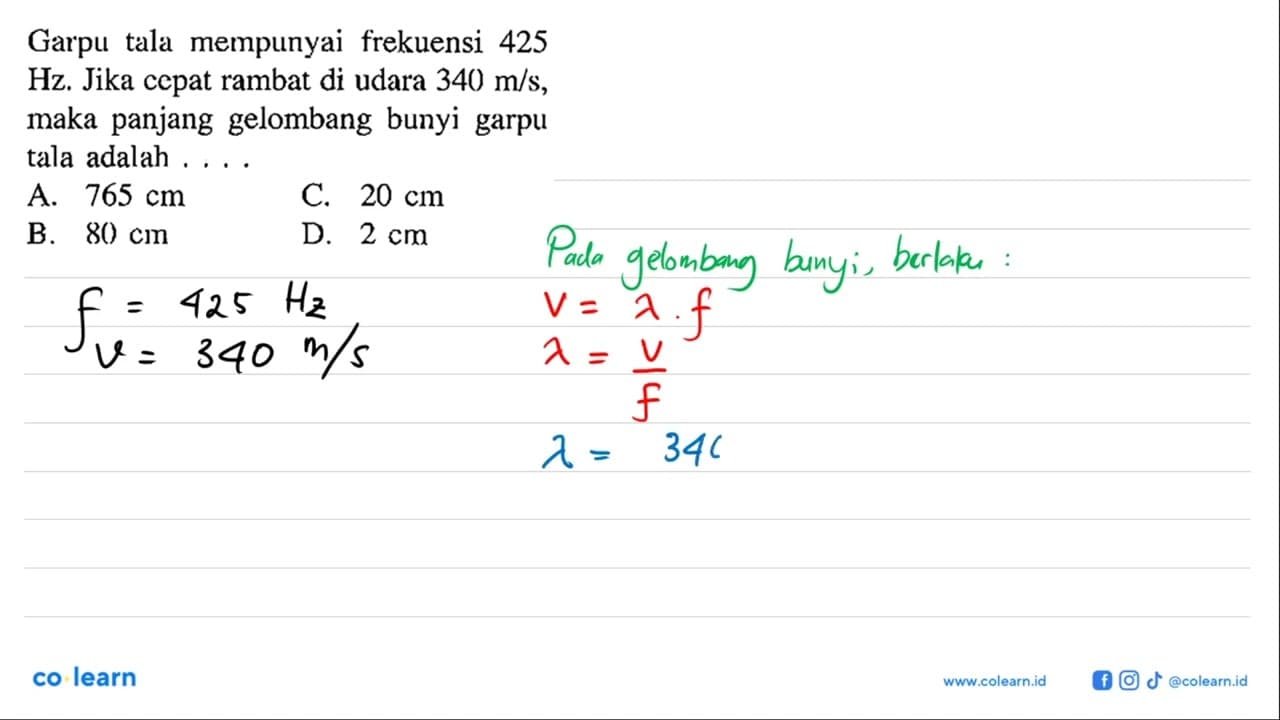 Garpu tala mempunyai frekuensi 425
Hz. Jika cepat rambat di udara 340 m/s,
maka panjang gelombang bunyi garpu
tala adalah . . . .
A. 765 cm C. 20 cm
B. 80 cm D. 2 cm
Pada gelombang bunyi, berlaku :
f = 425 Hz
v = λ . f
v = 340 m/s
λ = v
f
λ = 340
co learn
www.colearn.id
@colearn.id